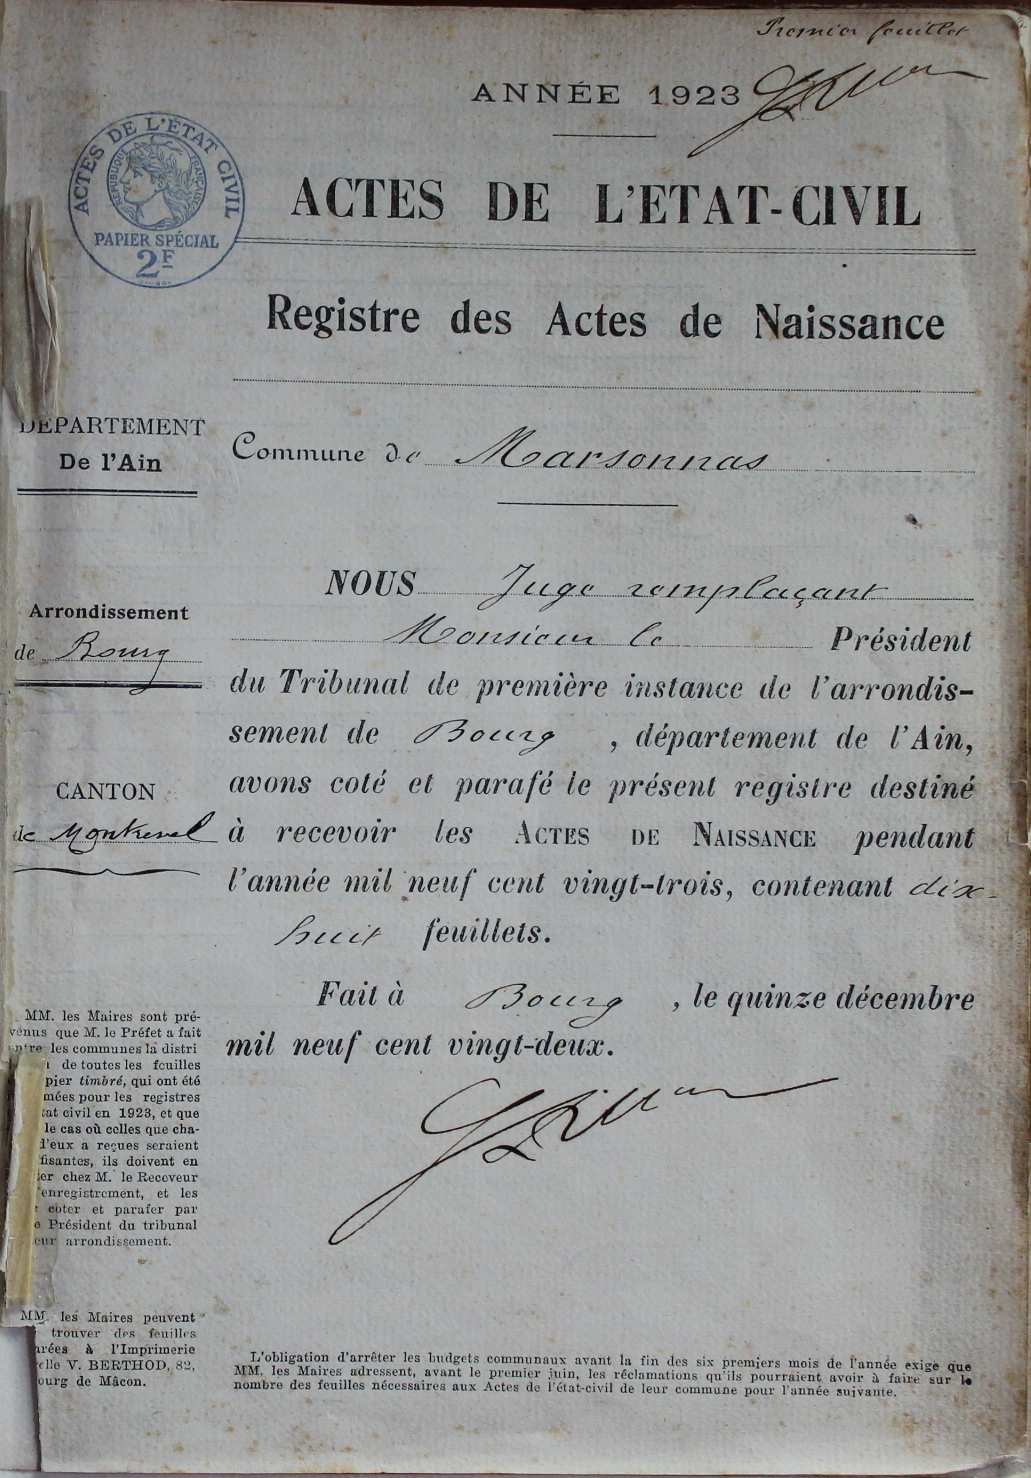 Premier feuillet
ANNÉE 1923
ACTES DE L'ÉTAT CIVIL
RÉPUBLIQUE FRANÇAISE
PAPIER SPÉCIAL
2F
ACTES DE L'ETAT-CIVIL
Registre des Actes de Naissance
DÉPARTEMENT
De l'Ain
Commune de Marsonnas
Arrondissement
de Bourg
CANTON
de Montrevel
NOUS Juge remplaçant
Monsieur le Président
du Tribunal de première instance de l'arrondis-
sement de Bourg , département de l'Ain,
avons coté et parafé le présent registre destiné
à recevoir les ACTES DE NAISSANCE pendant
l'année mil neuf cent vingt-trois, contenant dix-
huit feuillets.
Fait à Bourg , le quinze décembre
mil neuf cent vingt-deux.
MM. les Maires sont pré-
venus que M. le Préfet a fait
entre les communes la distri
de toutes les feuilles
pier timbré, qui ont été
mées pour les registres
tat civil en 1923, et que
le cas où celles que cha-
d'eux a reçues seraient
fisantes, ils doivent en
er chez M. le Receveur
'enregistrement, et les
coter et parafer par
Président du tribunal
eur arrondissement.
MM. les Maires peuvent
trouver des feuilles
arées à l'Imprimerie
elle V. BERTHOD, 82,
ourg de Mâcon.
L'obligation d'arrêter les budgets communaux avant la fin des six premiers mois de l'année exige que
MM. les Maires adressent, avant le premier juin, les réclamations qu'ils pourraient avoir à faire sur le
nombre des feuilles nécessaires aux Actes de l'état-civil de leur commune pour l'année suivante.